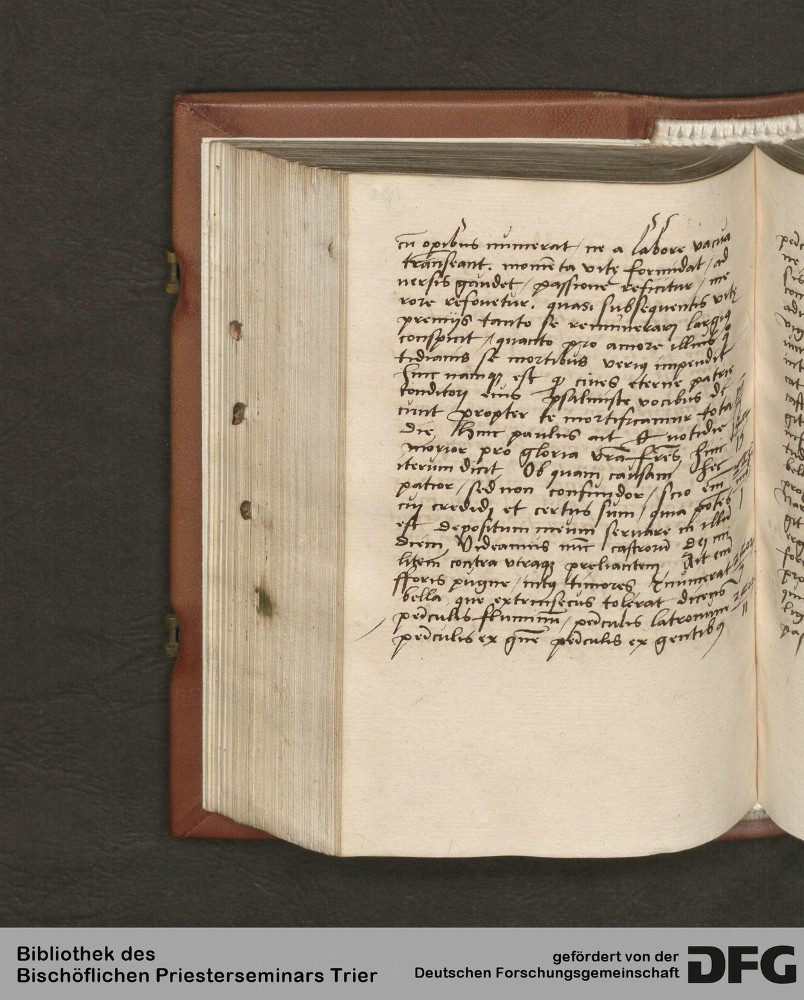 cū opibus numerat / ne a labore vacua
transeant. momēta vite formidat / ad
uersis gaudet / passione reficitur / me
rore refouetur. quasi subsequentis vite
premijs tanto se remunerari largiꝰ
conspicit / quanto pro amore illius q̊
tidianis se mortibus veriꝰ impendit
hinc namqꝫ est ꝙ ciues eterne patrie
conditori eius psalmiste vocibus di
cunt propter te mortificamur tota
die, Hinc paulus ait Et quotidie
morior pro gloria vr̄a fr̄es, hinc
iterum dicit Ob quam causam hec
patior / sed non confundor / scio em̄
cui credidi et certus sum / quia potēs
est depositum meum seruare in illū
diem, Videamus nūc castrorū dei mi
litem contra vtraqꝫ preliantem Ait em̄
fforis pugne / intꝰ timores Enumerat
bella que extrinsecus tolerat dicens
periculis fluminum / periculis latronum
periculis ex gn̄e periculis ex gentibꝰ
Bibliothek des
Bischöflichen Priesterseminars Trier
gefördert von der
Deutschen Forschungsgemeinschaft
DFG